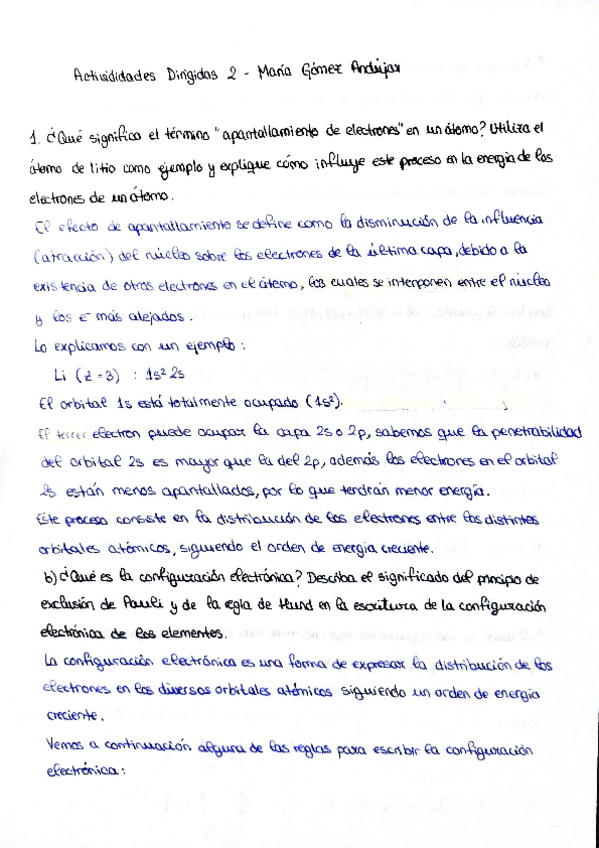 Activididades Dirigidas 2 - María Gómez Andújar
1. ¿Qué significa el término "apantallamiento de electrones" en un átomo? Utiliza el
átomo de litio como ejemplo y explique cómo influye este proceso en la energia de los
electrones de un átomo.
El efecto de apantallamiento se define como la disminución de la influencia
(atracción) del núcleo sobre los electrones de la última capa, debido a la
existencia de otros electrones en el átomo, los cuales se interponen entre el núcleo
y los e⁻ más alejados.
Lo explicamos con un ejemplo:
Li (Z=3) : 1s² 2s
El orbital 1s está totalmente ocupado (1s²).
El tercer electron puede ocupar la capa 2s o 2p, sabemos que la penetrabilidad
del orbital 2s es mayor que la del 2p, además los electrones en el orbital
2s están menos apantallados, por lo que tendrán menor energía.
Este proceso consiste en la distribución de los electrones entre los distintos
orbitales atómicos, siguiendo el orden de energia creciente.
b) ¿Qué es la configuración electrónica? Describa el significado del principio de
exclusión de Pauli y de la regla de Hund en la escritura de la configuración
electrónica de los elementos.
La configuración electrónica es una forma de expresar la distribución de los
electrones en los diversos orbitales atómicos siguiendo un orden de energia
creciente.
Vemos a continuación alguna de las reglas para escribir la configuración
electrónica: